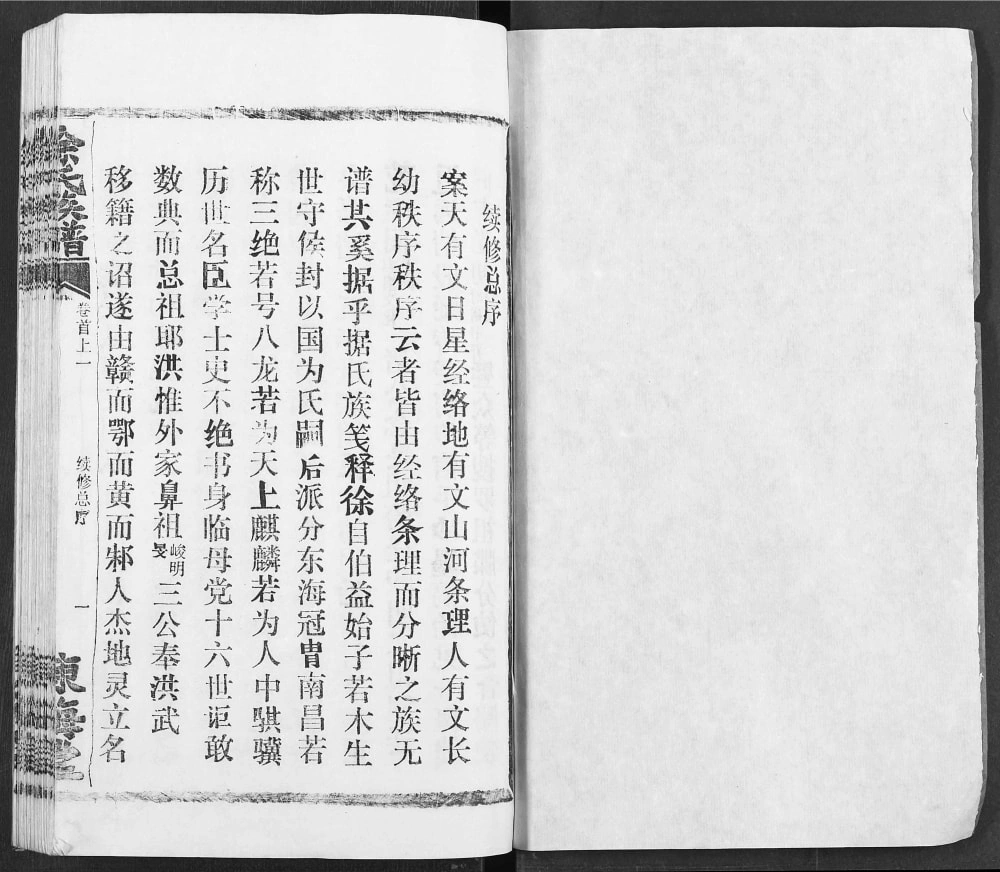 续修总序
案天有文日星经络地有文山河条理人有文长
幼秩序秩序云者皆由经络条理而分晰之族无
谱其奚据乎据氏族笺释徐自伯益始子若木生
世守侯封以国为氏嗣后派分东海冠胄南昌若
称三绝若号八龙若为天上麒麟若为人中骐骥
历世名臣学士史不绝书身临母党十六世讵敢
数典而总祖耶洪惟外家鼻祖峻明旻三公奉洪武
移籍之诏遂由赣而鄂而黄而邾人杰地灵立名
徐氏族谱
卷首上一
续修总序
一
東海堂